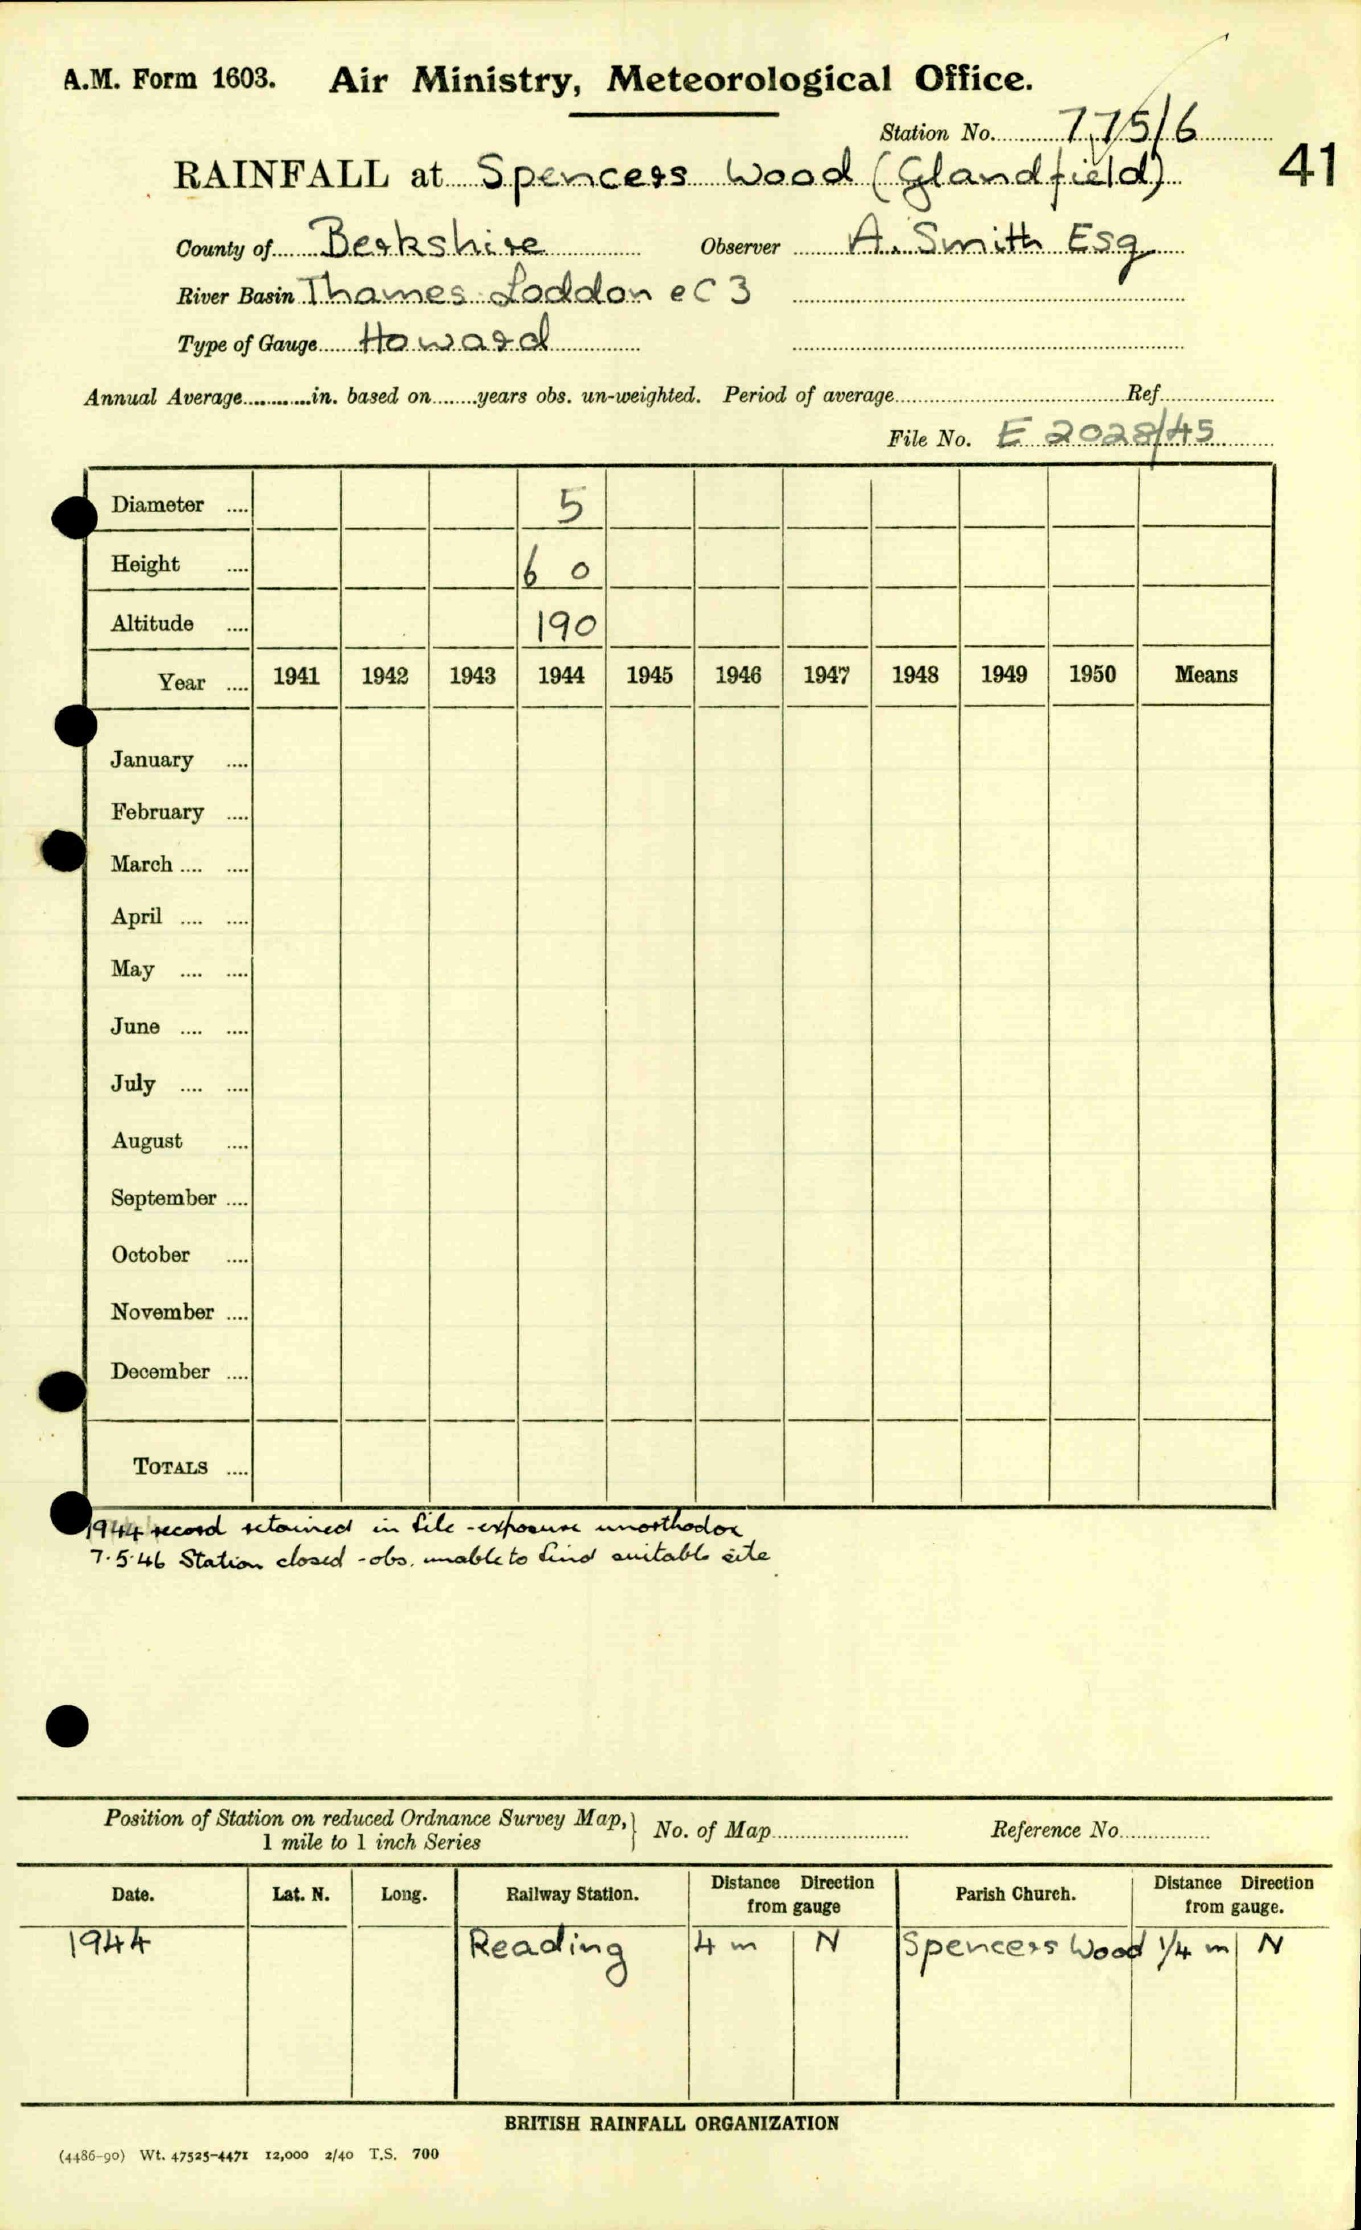 A.M. Form 1603. Air Ministry, Meteorological Office.
Station No. 775/6
41
RAINFALL at Spencers Wood (Glandfield)
County of Berkshire Observer A. Smith Esq
River Basin Thames Loddon e C 3
Type of Gauge Howard
Annual Average in. based on years obs. un-weighted. Period of average Ref
File No. E 2028/45
Diameter .... 5
Height .... 6 0
Altitude .... 190
Year .... 1941 1942 1943 1944 1945 1946 1947 1948 1949 1950 Means
January ....
February ....
March .... ....
April .... ....
May .... ....
June .... ....
July .... ....
August ....
September ....
October ....
November ....
December ....
TOTALS ....
1944 record retained in file - exposure unorthodox
7.5.46 Station closed - obs. unable to find suitable site
Position of Station on reduced Ordnance Survey Map, } No. of Map Reference No
1 mile to 1 inch Series
Date. Lat. N. Long. Railway Station. Distance Direction from gauge Parish Church. Distance Direction from gauge.
1944 Reading 4 m N Spencers Wood 1/4 m N
BRITISH RAINFALL ORGANIZATION
(4486-90) Wt. 47525-4471 12,000 2/40 T.S. 700